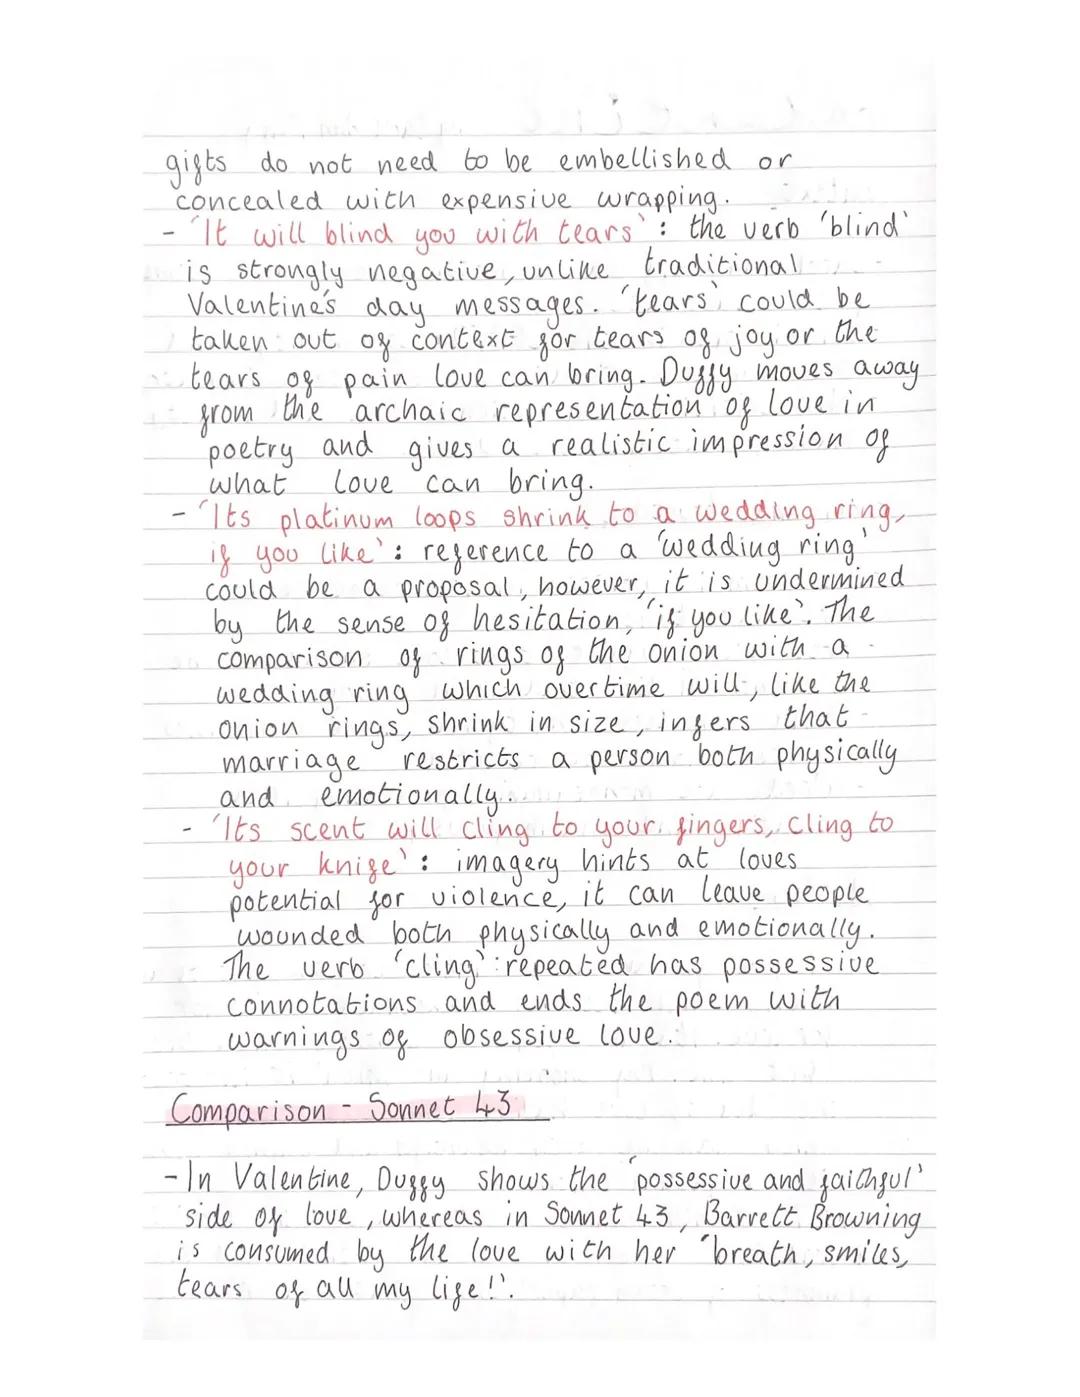 gifts do not need to be embellished or
concealed with expensive wrapping.
- 'It will blind you with tears': the verb 'blind'
is strongly negative, unlike traditional
Valentine's day messages. 'tears' could be
taken out of context for tears of joy or the
tears of pain love can bring. Duffy moves away
from the archaic representation of love in
poetry and gives a realistic impression of
what love can bring.
- 'Its platinum loops shrink to a wedding ring,
if you like': reference to a 'wedding ring'
could be a proposal, however, it is undermined
by the sense of hesitation, 'if you like'. The
comparison of rings of the onion with a
wedding ring which overtime will, like the
onion rings, shrink in size, infers that
marriage restricts a person both physically
and emotionally.
- 'Its scent will cling to your fingers, cling to
your knife': imagery hints at loves
potential for violence, it can leave people
wounded both physically and emotionally.
The verb 'cling' repeated has possessive
connotations and ends the poem with
warnings of obsessive love.
Comparison - Sonnet 43
- In Valentine, Duffy shows the 'possessive and faithful'
side of love, whereas in Sonnet 43, Barrett Browning
is consumed by the love with her 'breath, smiles,
tears of all my life!'.